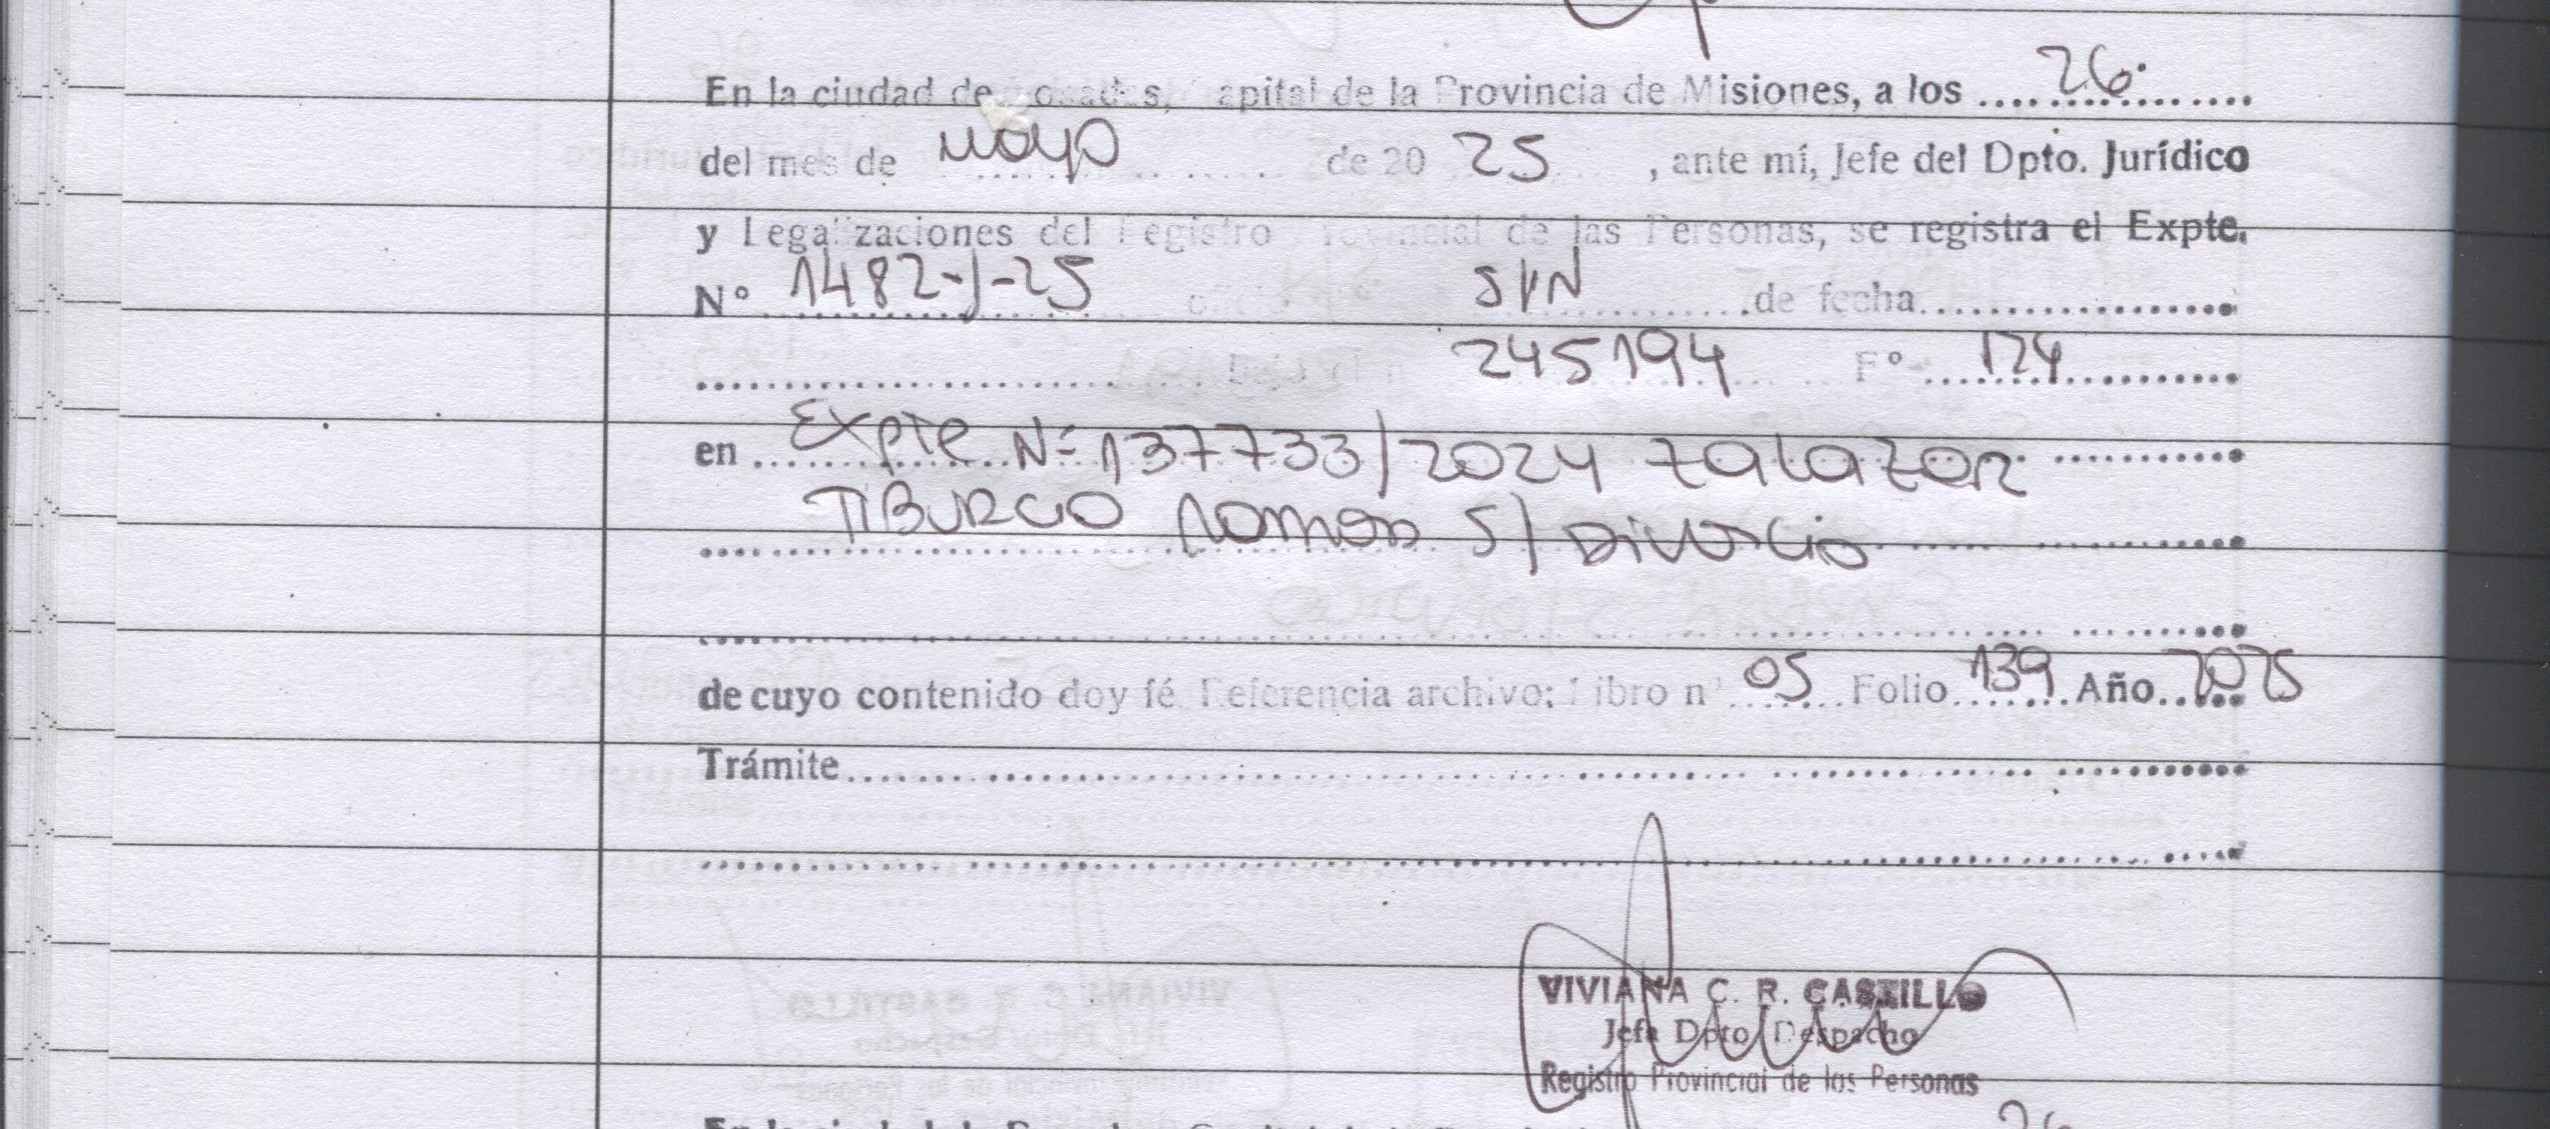 En la ciudad de Posadas, Capital de la Provincia de Misiones, a los 26
del mes de mayo de 2025, ante mí, Jefe del Dpto. Jurídico
y Legalizaciones del Registro Provincial de las Personas, se registra el Expte.
Nº 1482-J-25 oficio S/N de fecha
245194 Fº 124
en Expte Nº 137733/2024 zalazar
TIBURCIO Ramon S/ Divorcio
de cuyo contenido doy fé. Referencia archivo: Libro nº 05 Folio 139 Año 2025
Trámite
VIVIANA C. R. CASTILLO
Jefa Dpto Despacho
Registro Provincial de las Personas